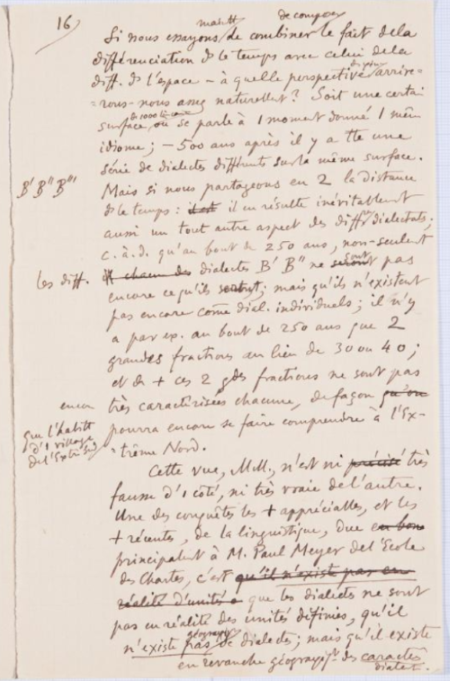 16)
mainten^t de composer
Si nous essayons de combiner le fait de la
différenciation ds le temps avec celui de la
diff. ds l'espace – à quelle perspective arrive-
=rons-nous assez naturellem^t? Soit une certai
surface, où se parle à 1 moment donné 1 mêm
idiome; – 500 ans après il y a tte une
série de dialectes différents sur la même surface.
B' B" B"' Mais si nous partageons en 2 la distance
ds le temps: il en résulte inévitablement
aussi un tout autre aspect des diff^ts dialectes,
c.à.d. qu'au bout de 250 ans, non-seulent
les diff. dialectes B' B" ne sont pas
encore ce qu'ils sont; mais qu'ils n'existent
pas encore come dial. individuels; il n'y
a par ex. au bout de 250 ans que 2
grandes fractions au lieu de 30 ou 40;
et de + ces 2 gdes fractions ne sont pas
encore très caractérisées chacune, de façon
que l'habit^t
d'1 village
de l'Ext. Sud
pourra encore se faire comprendre à l'Ex-
=trême Nord.
Cette vue, M.M., n'est ni très
fausse d'1 côté, ni très vraie de l'autre.
Une des conquêtes les + appréciables, et les
+ récentes, de la linguistique, due
principalent à M. Paul Meyer de l'Ecole
des Chartes, c'est qu'il n'existe pas en
réalité d'unités que les dialectes ne sont
pas en réalité des unités définies, qu'il
géograph^t
n'existe pas de dialectes; mais qu'il existe
en revanche géographiq^t des caractères
dialect.